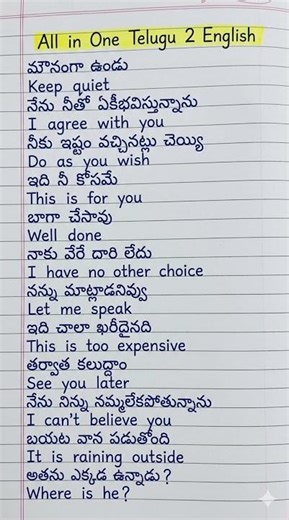 All in One Telugu 2 English
మౌనంగా ఉండు
Keep quiet
నేను నీతో ఏకీభవిస్తున్నాను
I agree with you
నీకు ఇష్టం వచ్చినట్లు చెయ్యి
Do as you wish
ఇది నీ కోసమే
This is for you
బాగా చేసావు
Well done
నాకు వేరే దారి లేదు
I have no other choice
నన్ను మాట్లాడనివ్వు
Let me speak
ఇది చాలా ఖరీదైనది
This is too expensive
తర్వాత కలుద్దాం
See you later
నేను నిన్ను నమ్మలేకపోతున్నాను
I can't believe you
బయట వాన పడుతోంది
It is raining outside
అతను ఎక్కడ ఉన్నాడు?
Where is he?